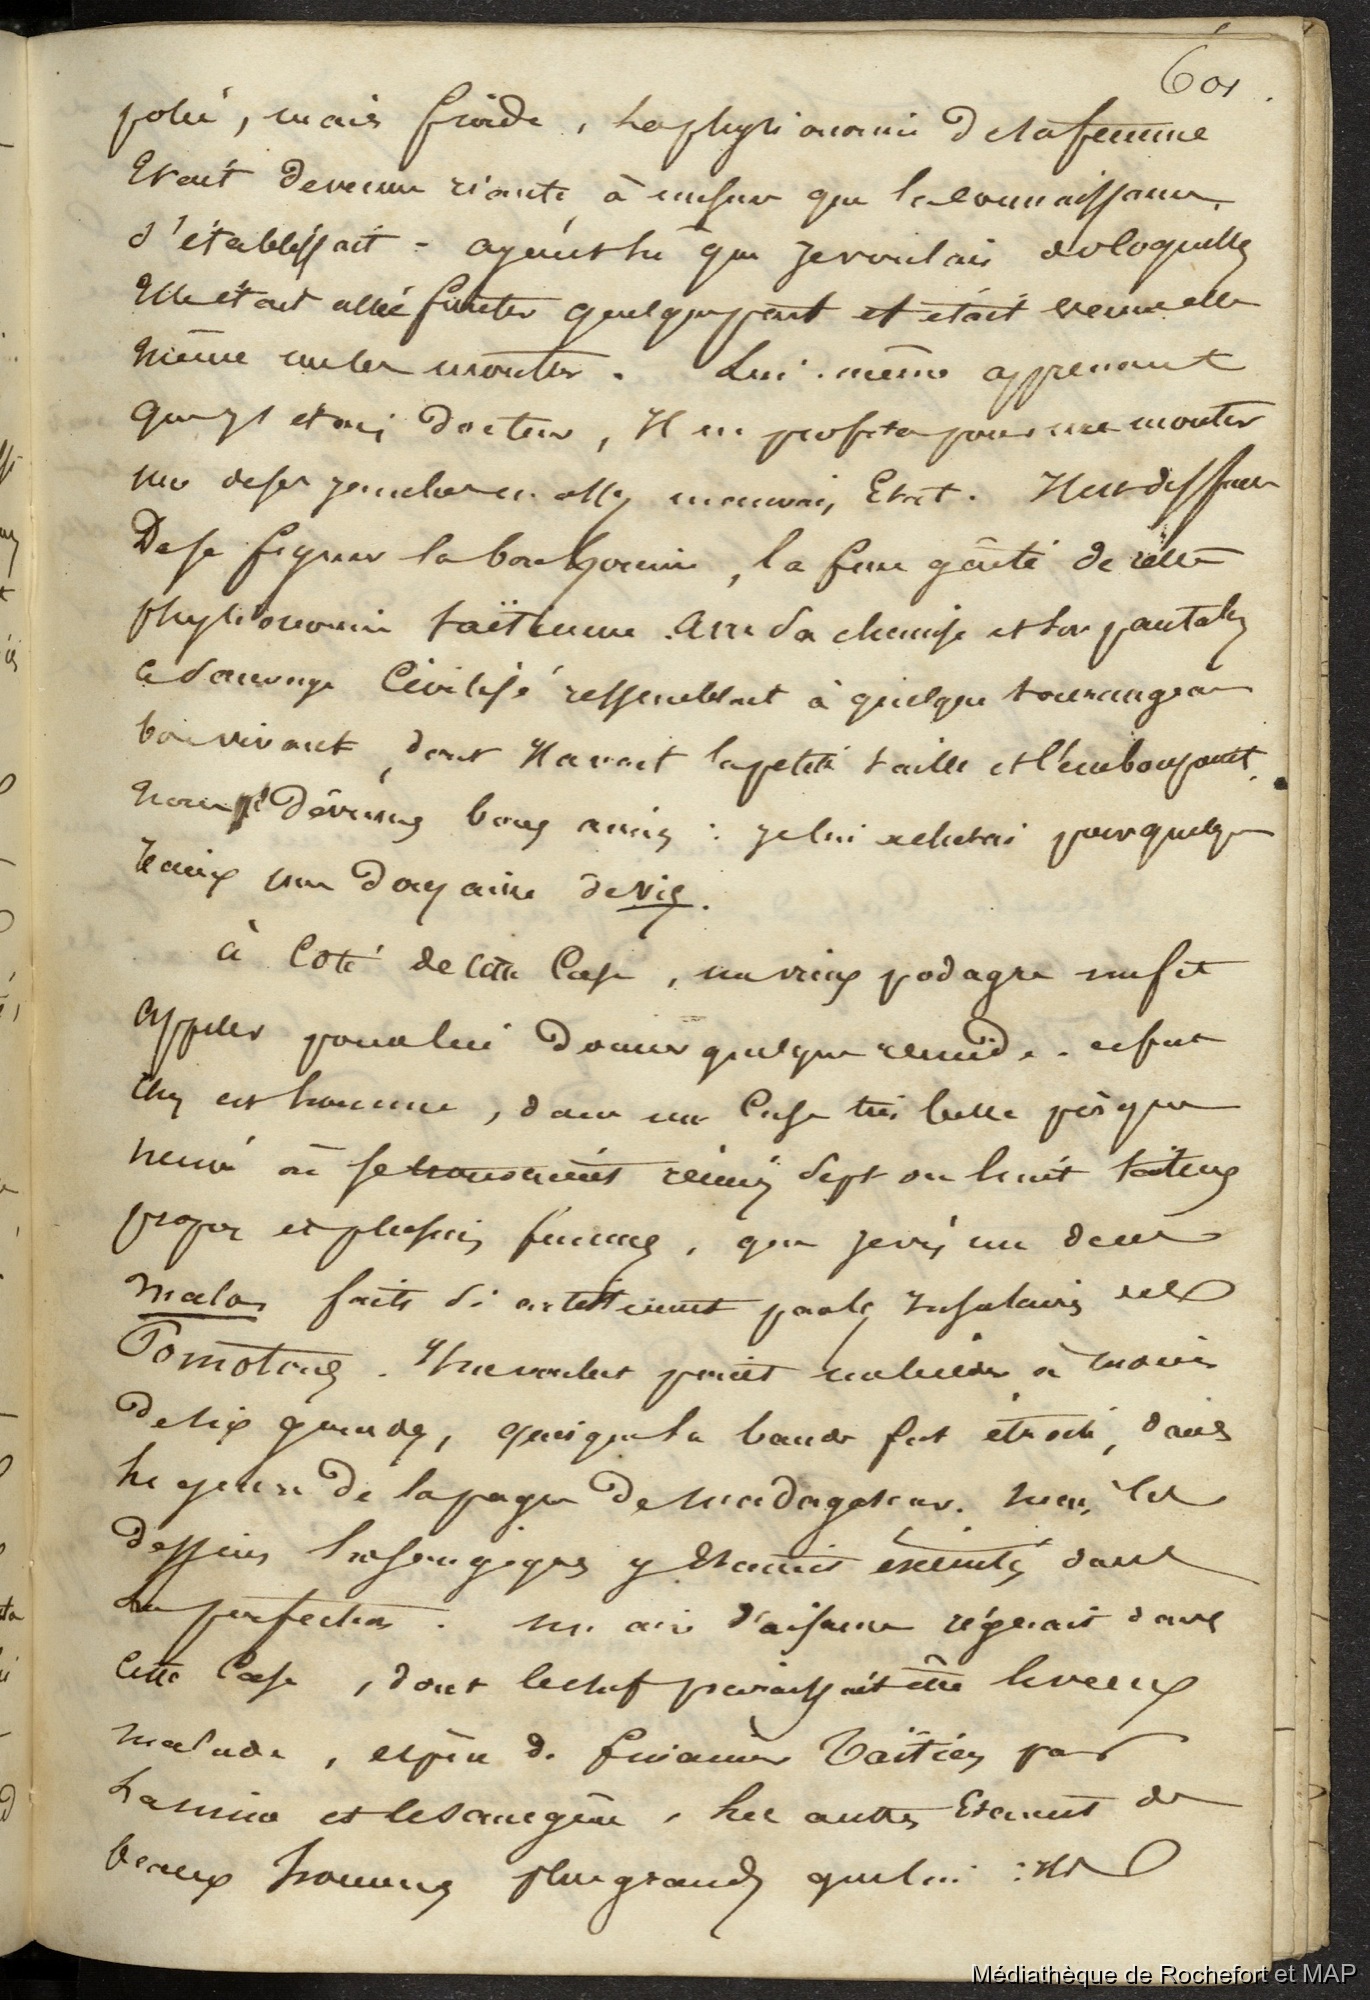 601.
polie, mais froide, la physionomie de la femme
était devenue riante à mesure que la connaissance
s'établissait - ayant su que je voulais des coquilles
elle était allée fureter quelque part et était venue elle
même me les montrer. Lui-même apprenant
que j'étais docteur, Il en profita pour me montrer
une de ses jambes en assez mauvais Etat. Il est difficile
De se figurer la bonhomie, la fine gaîté de cette
physionomie taïtienne. Avec sa chemise et son pantalon
ce sauvage civilisé ressemblait à quelque tourangeau
bon vivant, dont Il avait la petite taille et l'embonpoint.
nous Devînmes bons amis : je lui achetai pour quelques
une Douzaine de vis.
à Coté de cette Case, un vieux podagre me fit
appeler pour lui Donner quelque remède. ce fut
chez cet homme, dans une Case très belle presque
neuve où se trouvaient réunis sept ou huit taïtiens
propres et plusieurs femmes, que je vis un de ces
maros faits si artistement par les Insulaires des
Pomotous. Il ne voulut point me le céder à moins
De six gourdes, quoique la bande fut étroite, dans
le genre De la pagne De Madagascar. mais les
Dessins losangiques y étaient exécutés dans
la perfection. un air d'aisance régnait dans
cette Case, dont le chef paraissait être le vieux
malade, espèce de financier Taïtien par
la mine et le sans gêne, les autres Etaient de
beaux hommes plus grands que lui : ils
Médiathèque de Rochefort et MAP